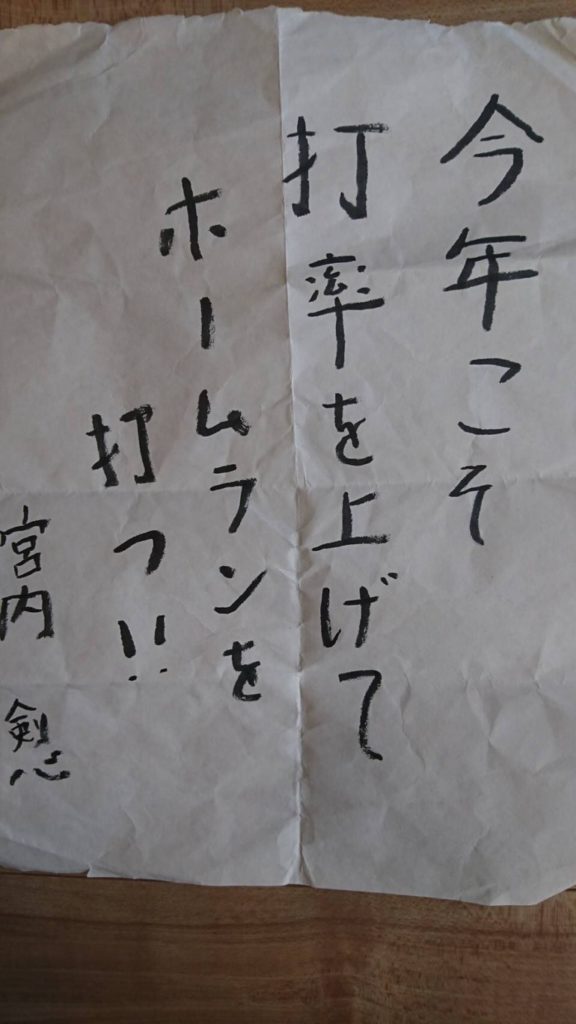 今年こそ
打率を上げて
ホームランを
打つ!!
宮内 剣心